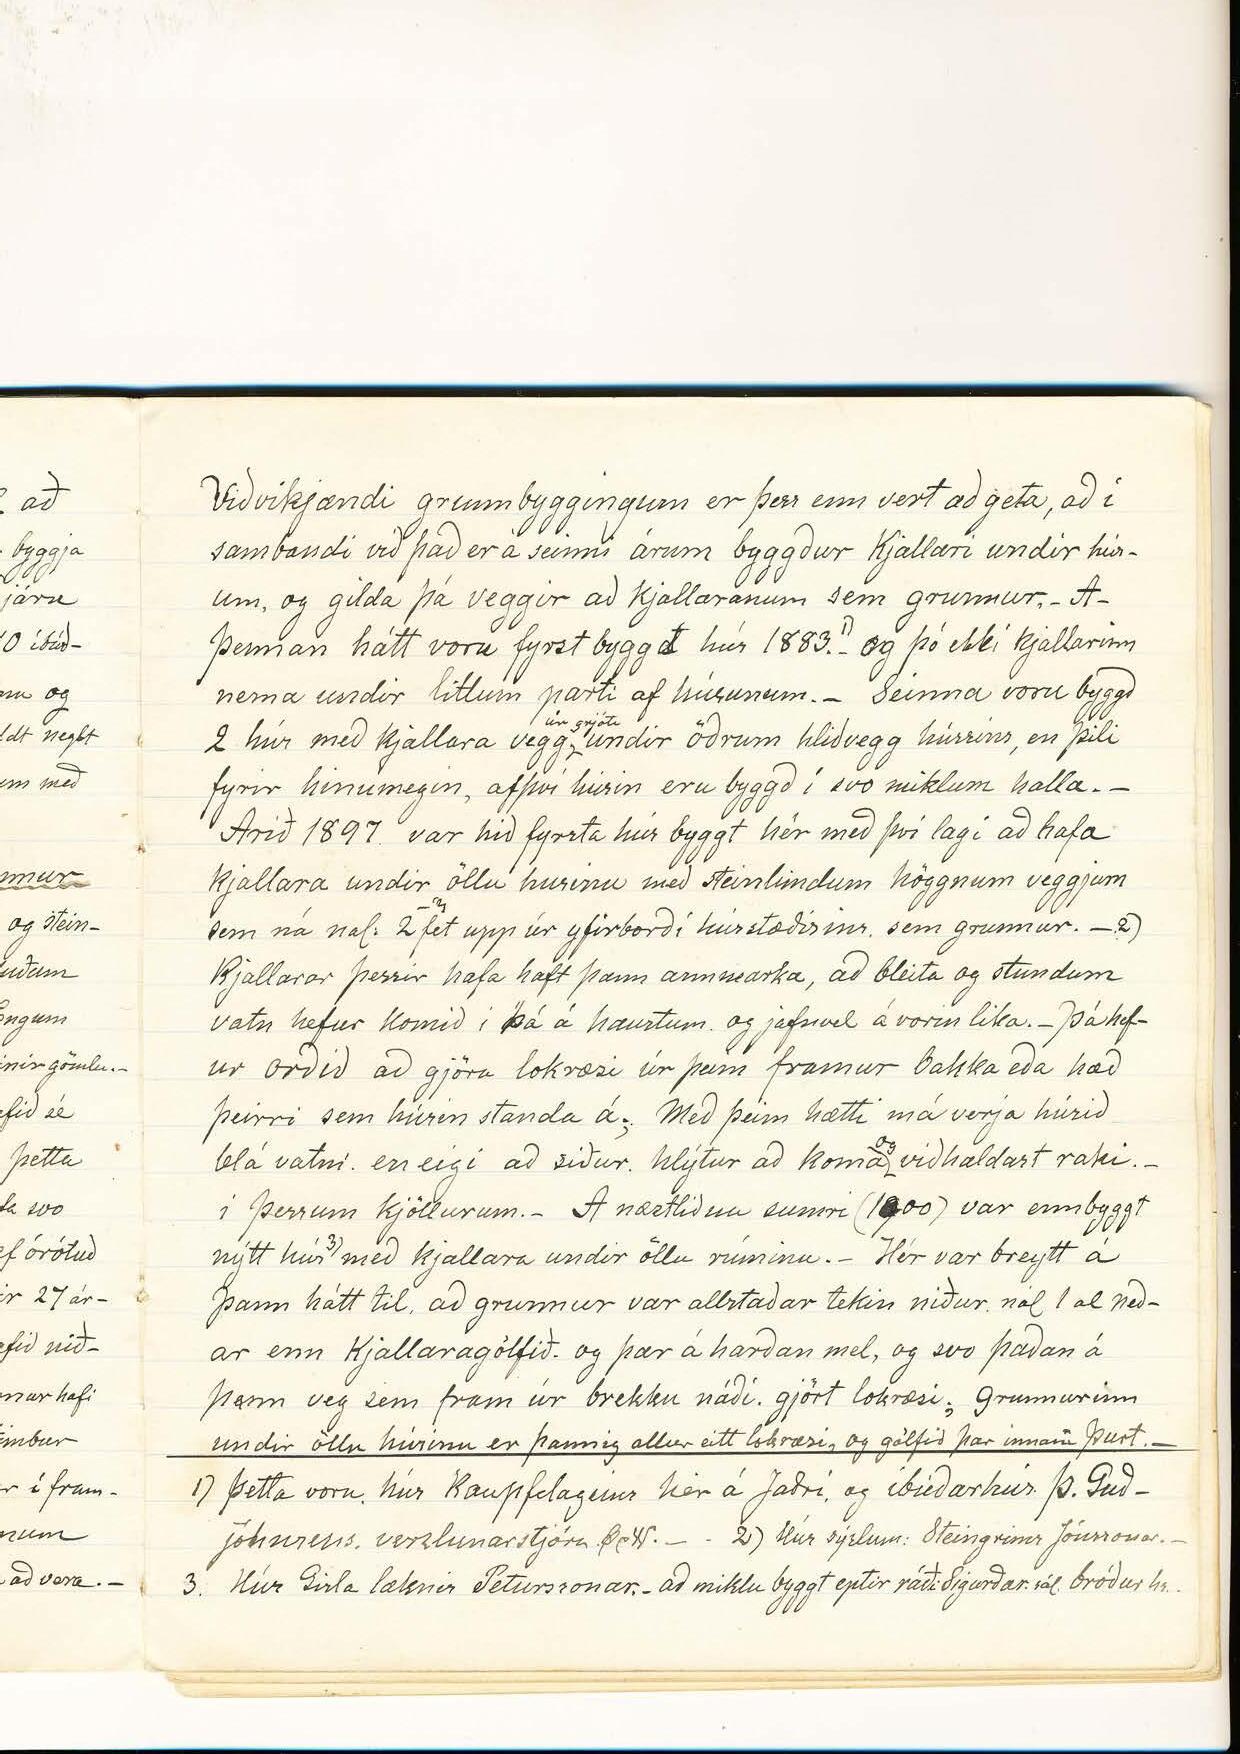 að
byggja
járn
0 íbúð-
nu og
ldt neglt
um með
og stein-
Öngum
inir gömlu.-
efið sé
þetta
svo
ef órótuð
ir 27 ár-
efið nið-
nar hafi
timbur
r í fram-
num
að vera.-
Viðvíkjandi grunnbyggingum er þess enn vert að geta, að í
sambandi við það er á seinni árum byggður Kjallari undir hús-
um, og gilda þá veggir að kjallaranum sem grunnur.- Á-
þennan hátt voru fyrst byggd hús 1883.1) og þó ekki kjallarinn
nema undir litlum parti af húsunum.- Seinna voru byggð
2 hús með kjallara vegg, úr grjóte undir öðrum hliðvegg hússins, en þili
fyrir hinumegin, afþví húsin eru byggð í svo miklum halla.-
Árið 1897 var hið fyrsta hús byggt hér með því lagi að hafa
kjallara undir öllu húsinu með steinlímdum höggnum veggjum
sem ná nál: 2-3 fet upp úr yfirborði hússtæðisins. sem grunnur.- 2)
Kjallarar þessir hafa haft þann annmarka, að bleita og stundum
vatn hefur komið í þá á haustum og jafnvel á vorin líka.- Þá hef-
ur orðið að gjöra lokræsi úr þeim framur bakka eða hæð
þeirri sem húsin standa á; Með þeim hætti má verja húsið
blá vatni. en eigi að síður. hlýtur að koma og viðhaldast raki.-
í þessum kjöllurum.- Á næstliðnu sumri (1900) var enn byggt
nýtt hús3) með kjallara undir öllu rúminu.- Hér var breytt á
þann hátt til, að grunnur var allstaðar tekin niður nál 1 al neð-
ar enn Kjallaragólfið. og þær á harðan mel, og svo þaðan á
þann veg sem fram úr brekku náði. gjört lokræsi; Grunnurinn
undir öllu húsinu er þannig allur eitt lokræsi, og gólfið þar innani þurt.-
1) Þetta voru. hús Kaupfelagsins hér á Jaðri, og íbúðarhús Þ. Guð-
johnsens. verzlunarstjóra Ö&W.- 2) Hús sýslum: Steingríms Jónssonar.-
3. Hús Gísla læknis Peturssonar.- að miklu byggt eptir ráði Sigurðar sál. bróður hs.